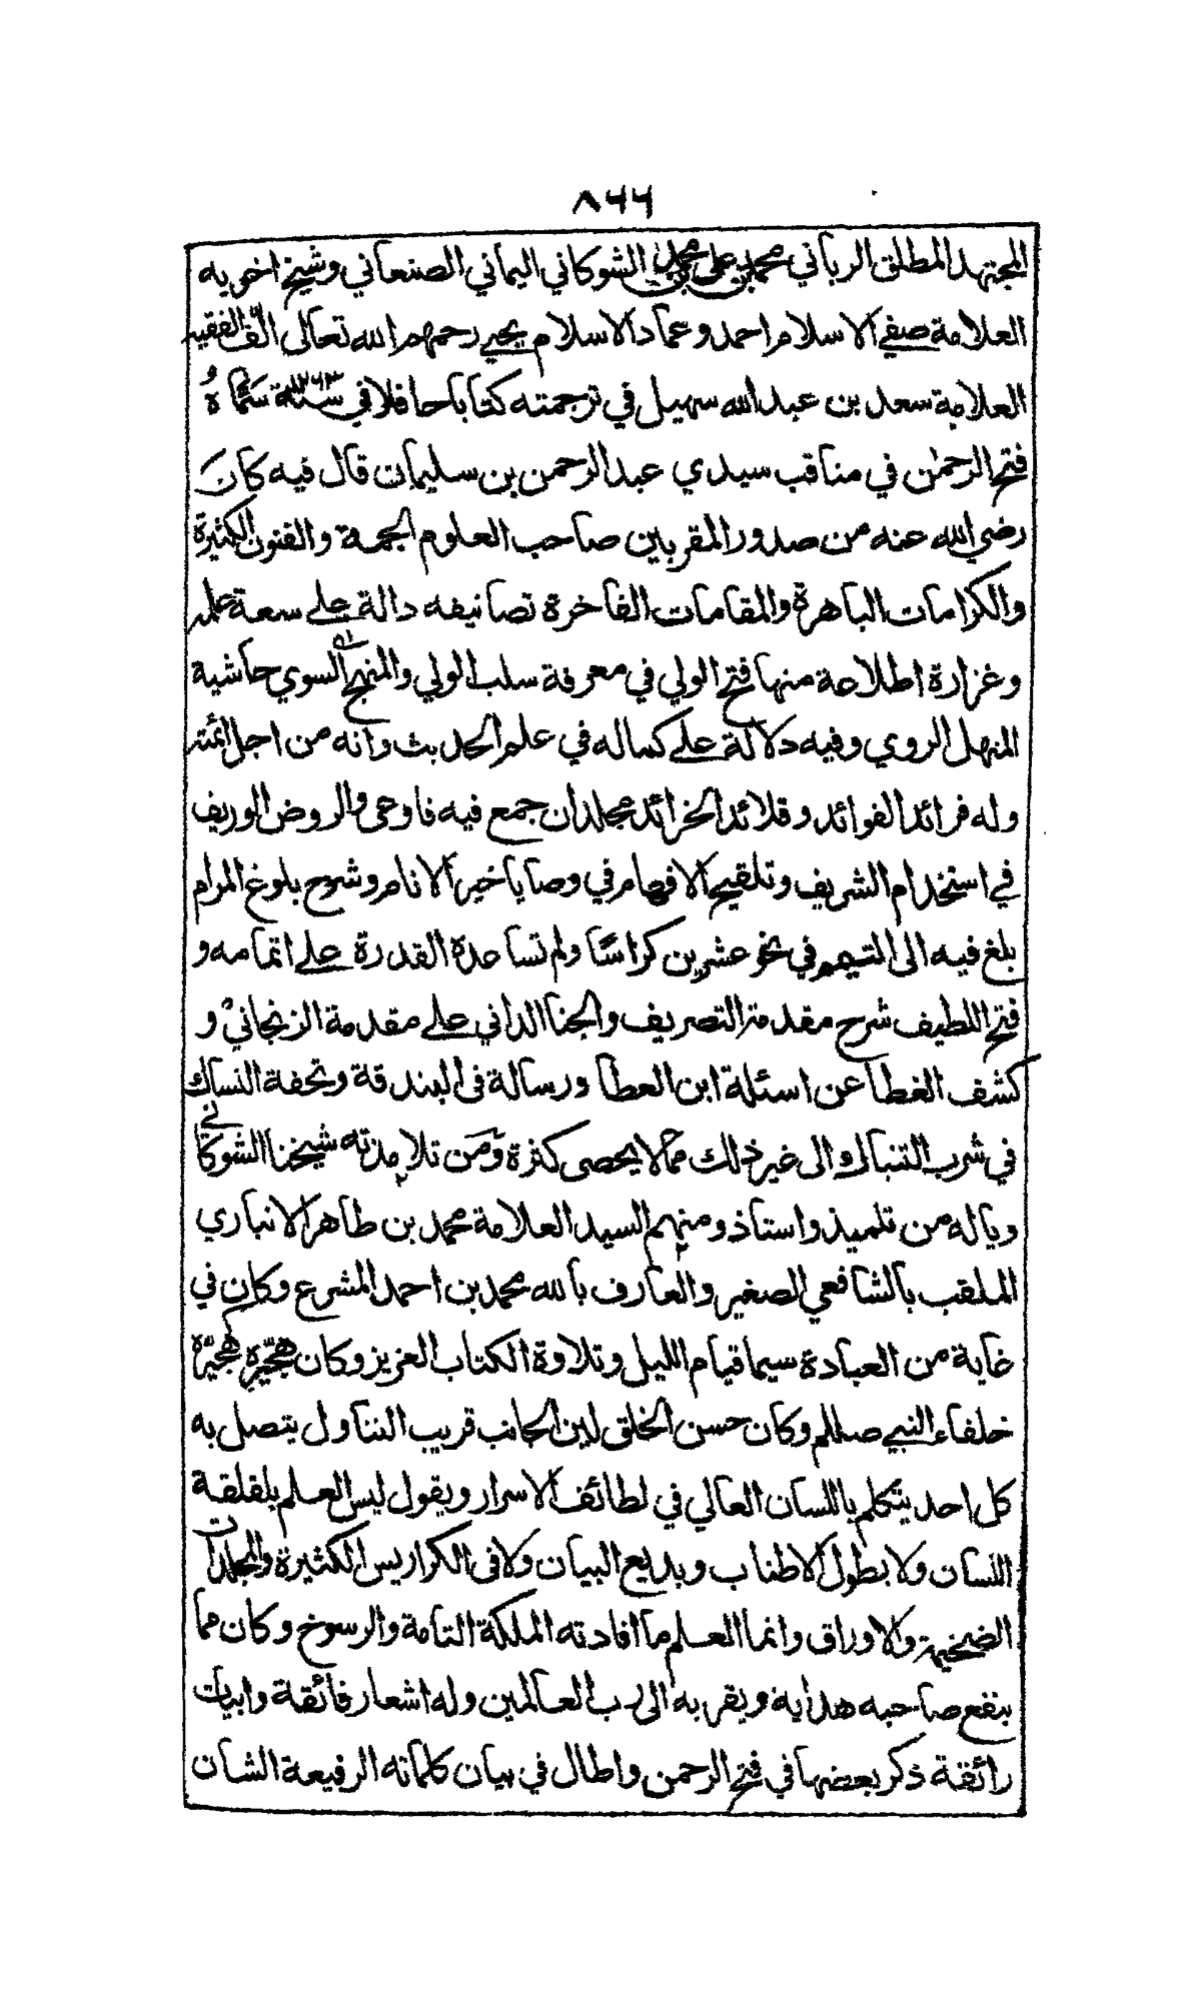 ٨٤٤
المجتهد المطلق الرباني محمد بن علي بن محمد الشوكاني اليماني الصنعاني وشيخ اخويه
العلامة صفي الاسلام احمد وعماد الاسلام يحيي رحمهم الله تعالى الّف الفقيه
العلامة سعد بن عبد الله سهيل في ترجمته كتابا حافلا في سنة ١٢٦٣ سماه
فتح الرحمن في مناقب سيدي عبد الرحمن بن سليمان قال فيه كان
رضي الله عنه من صدور المقربين صاحب العلوم الجمة والفنون الكثيرة
والكرامات الباهرة والمقامات الفاخرة تصانيفه دالة علے سعة علمه
وغزارة اطلاعه منها فتح الولي في معرفة سلب الولي والمنهج السوي حاشية
المنهل الروي وفيه دلالة علے كماله في علم الحديث وانه من اجل ائمته
وله فرائد الفوائد وقلائد الخرائد مجلدان جمع فيه فاوعى والروض الوريف
في استخدام الشريف وتلقيح الافهام في وصايا خير الانام وشرح بلوغ المرام
بلغ فيه الى التيمم في نحو عشرين كراسًا ولم تساعده القدرة علے اتمامه و
فتح اللطيف شرح مقدمة التصريف والجنا الداني علے مقدمة الزنجاني و
كشف الغطا عن اسئلة ابن العطا ورسالة في البندقة وتحفة النساك
في شرب التنباك والى غير ذلك مما لا يحصى كثرة ومن تلامذته شيخنا الشوكاني
وياله من تلميذ واستاذ ومنهم السيد العلامة محمد بن طاهر الانباري
الملقب بالشافعي الصغير والعارف بالله محمد بن احمد المشرع وكان في
غاية من العبادة سيما قيام الليل وتلاوة الكتاب العزيز وكان هجّيره هجّيرة
خلفاء النبي صللم وكان حسن الخلق لين الجانب قريب التناول يتصل به
كل احد يتكلم باللسان العالي في لطائف الاسرار ويقول ليس العلم بلقلقة
اللسان ولا بطول الاطناب وبديع البيان ولا في الكراريس الكثيرة والمجلدات
الضخيمة والاوراق وانما العلم ما افادته الملكة التامة والرسوخ وكان مما
ينفع صاحبه هداية ويقربه الى رب العالمين وله اشعار فائقة وابيات
رائقة ذكر بعضها في فتح الرحمن واطال في بيان كلماته الرفيعة الشان